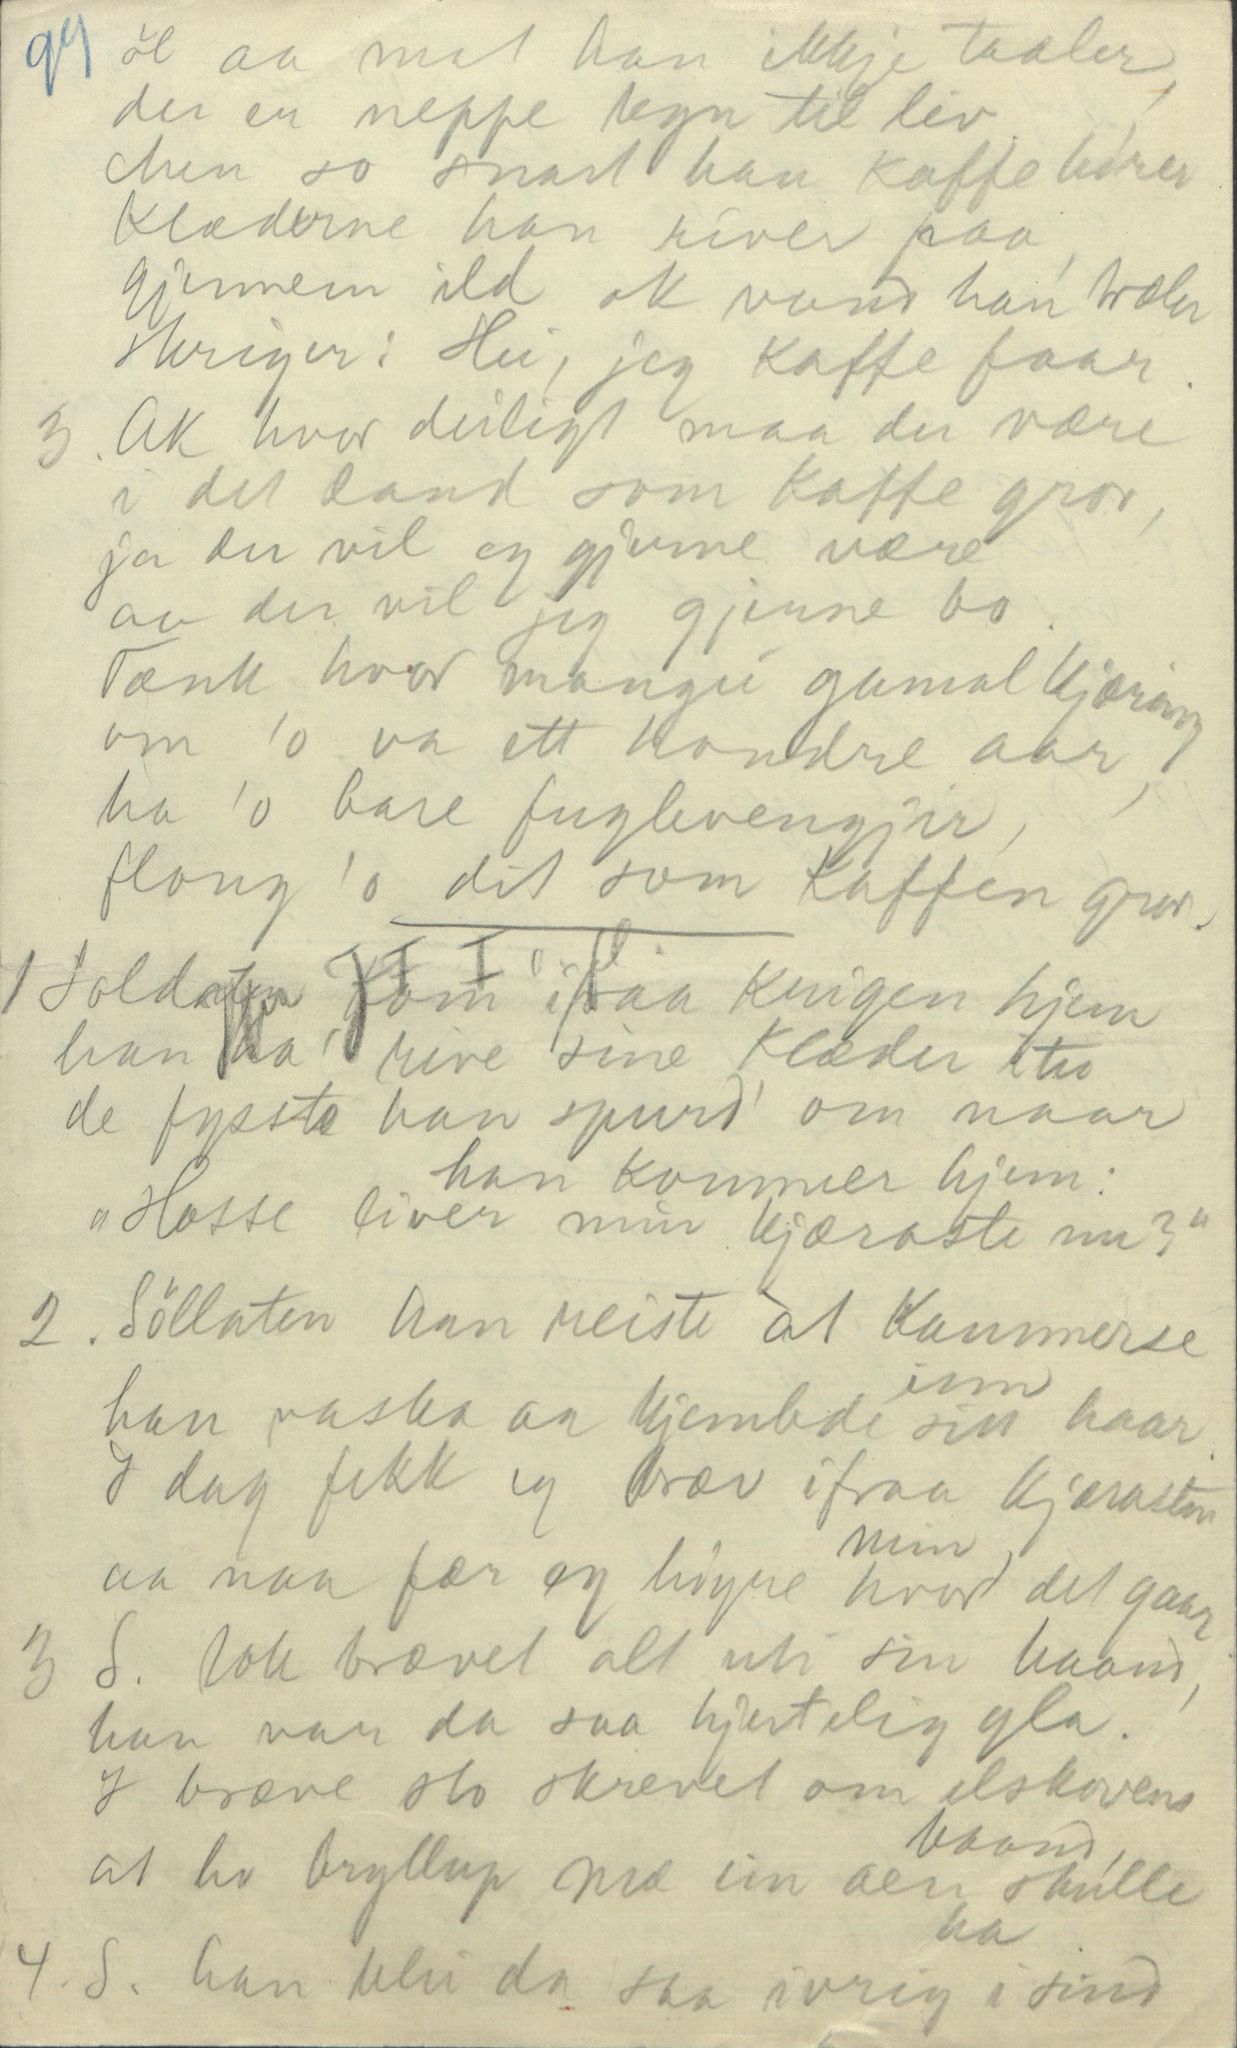 94 öl aa mat han ikkje taaler,
der er neppe tegn til liv.
Men so snart han kaffe hører
Klæderne han river paa,
gjennem ild ok vand han træler
skriger: Hei, jeg kaffe faar.
3. Ak hvor deiligt maa der være
i det land som kaffe gror,
ja der vil eg gjerne være
aa der vil jeg gjerne bo.
Tænk hvor mangei gamal kjæring
om 'o va ett hondre aar,
ha 'o bare fuglevengjir,
flong 'o dit som kaffen gror.
III
1 Soldaten kom ifraa krigen hjem
han ha' rive sine klæder itu
de fysste han spurd' om naar
han kommer hjem:
"Hosse liver min kjæraste nu?"
2. Söllaten han reiste at kammerse
inn
han vaska aa kjembde sitt haar.
I dag fekk eg bræv ifraa kjærasten
min,
aa naa fær eg høyre hvor det gaar
3 S. tok brævet alt uti sin haand,
han var da saa hjertelig gla.
I bræve sto skrevet om elskovens
baand,
at ho bryllup mæ ein aen skulle
ha
4. S. han blei da saa ivrig i sind